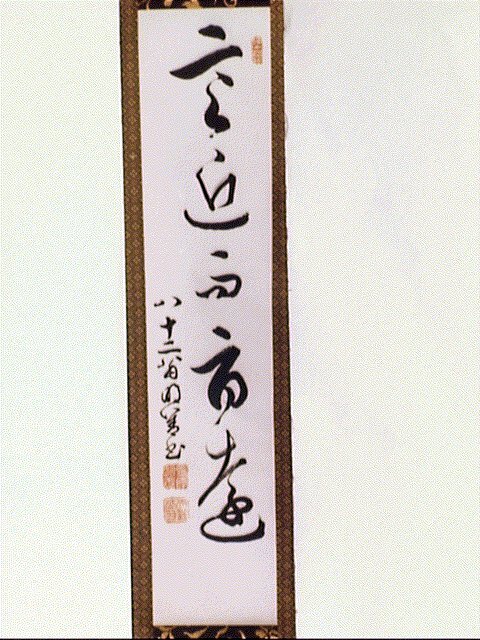 言近而旨遠
八十二翁書